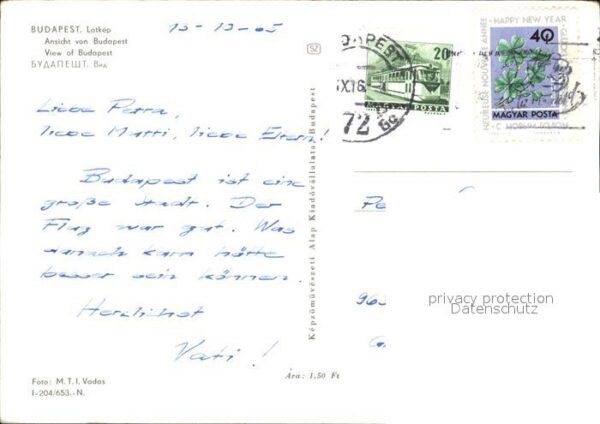 BUDAPEST. Látkép
Ansicht von Budapest
View of Budapest
БУДАПЕШТ. Вид
13-12-65
Liebe Petra,
liebe Mutti, liebe Eltern!
Budapest ist eine
große Stadt. Der
Flug war gut. Was
danach kam hätte
besser sein können.
Herzlichst
Vati!
Foto: M.T.I. Vadas
I-204/653.-N.
SZ
Képzőművészeti Alap Kiadóvállalata, Budapest
Ára: 1,50 Ft
20
MAGYAR POSTA
BUDAPEST
72
HAPPY NEW YEAR
HEUREUSE NOUVELLE ANNÉE
40
MAGYAR POSTA
Pe
963
G.
privacy protection
Datenschutz